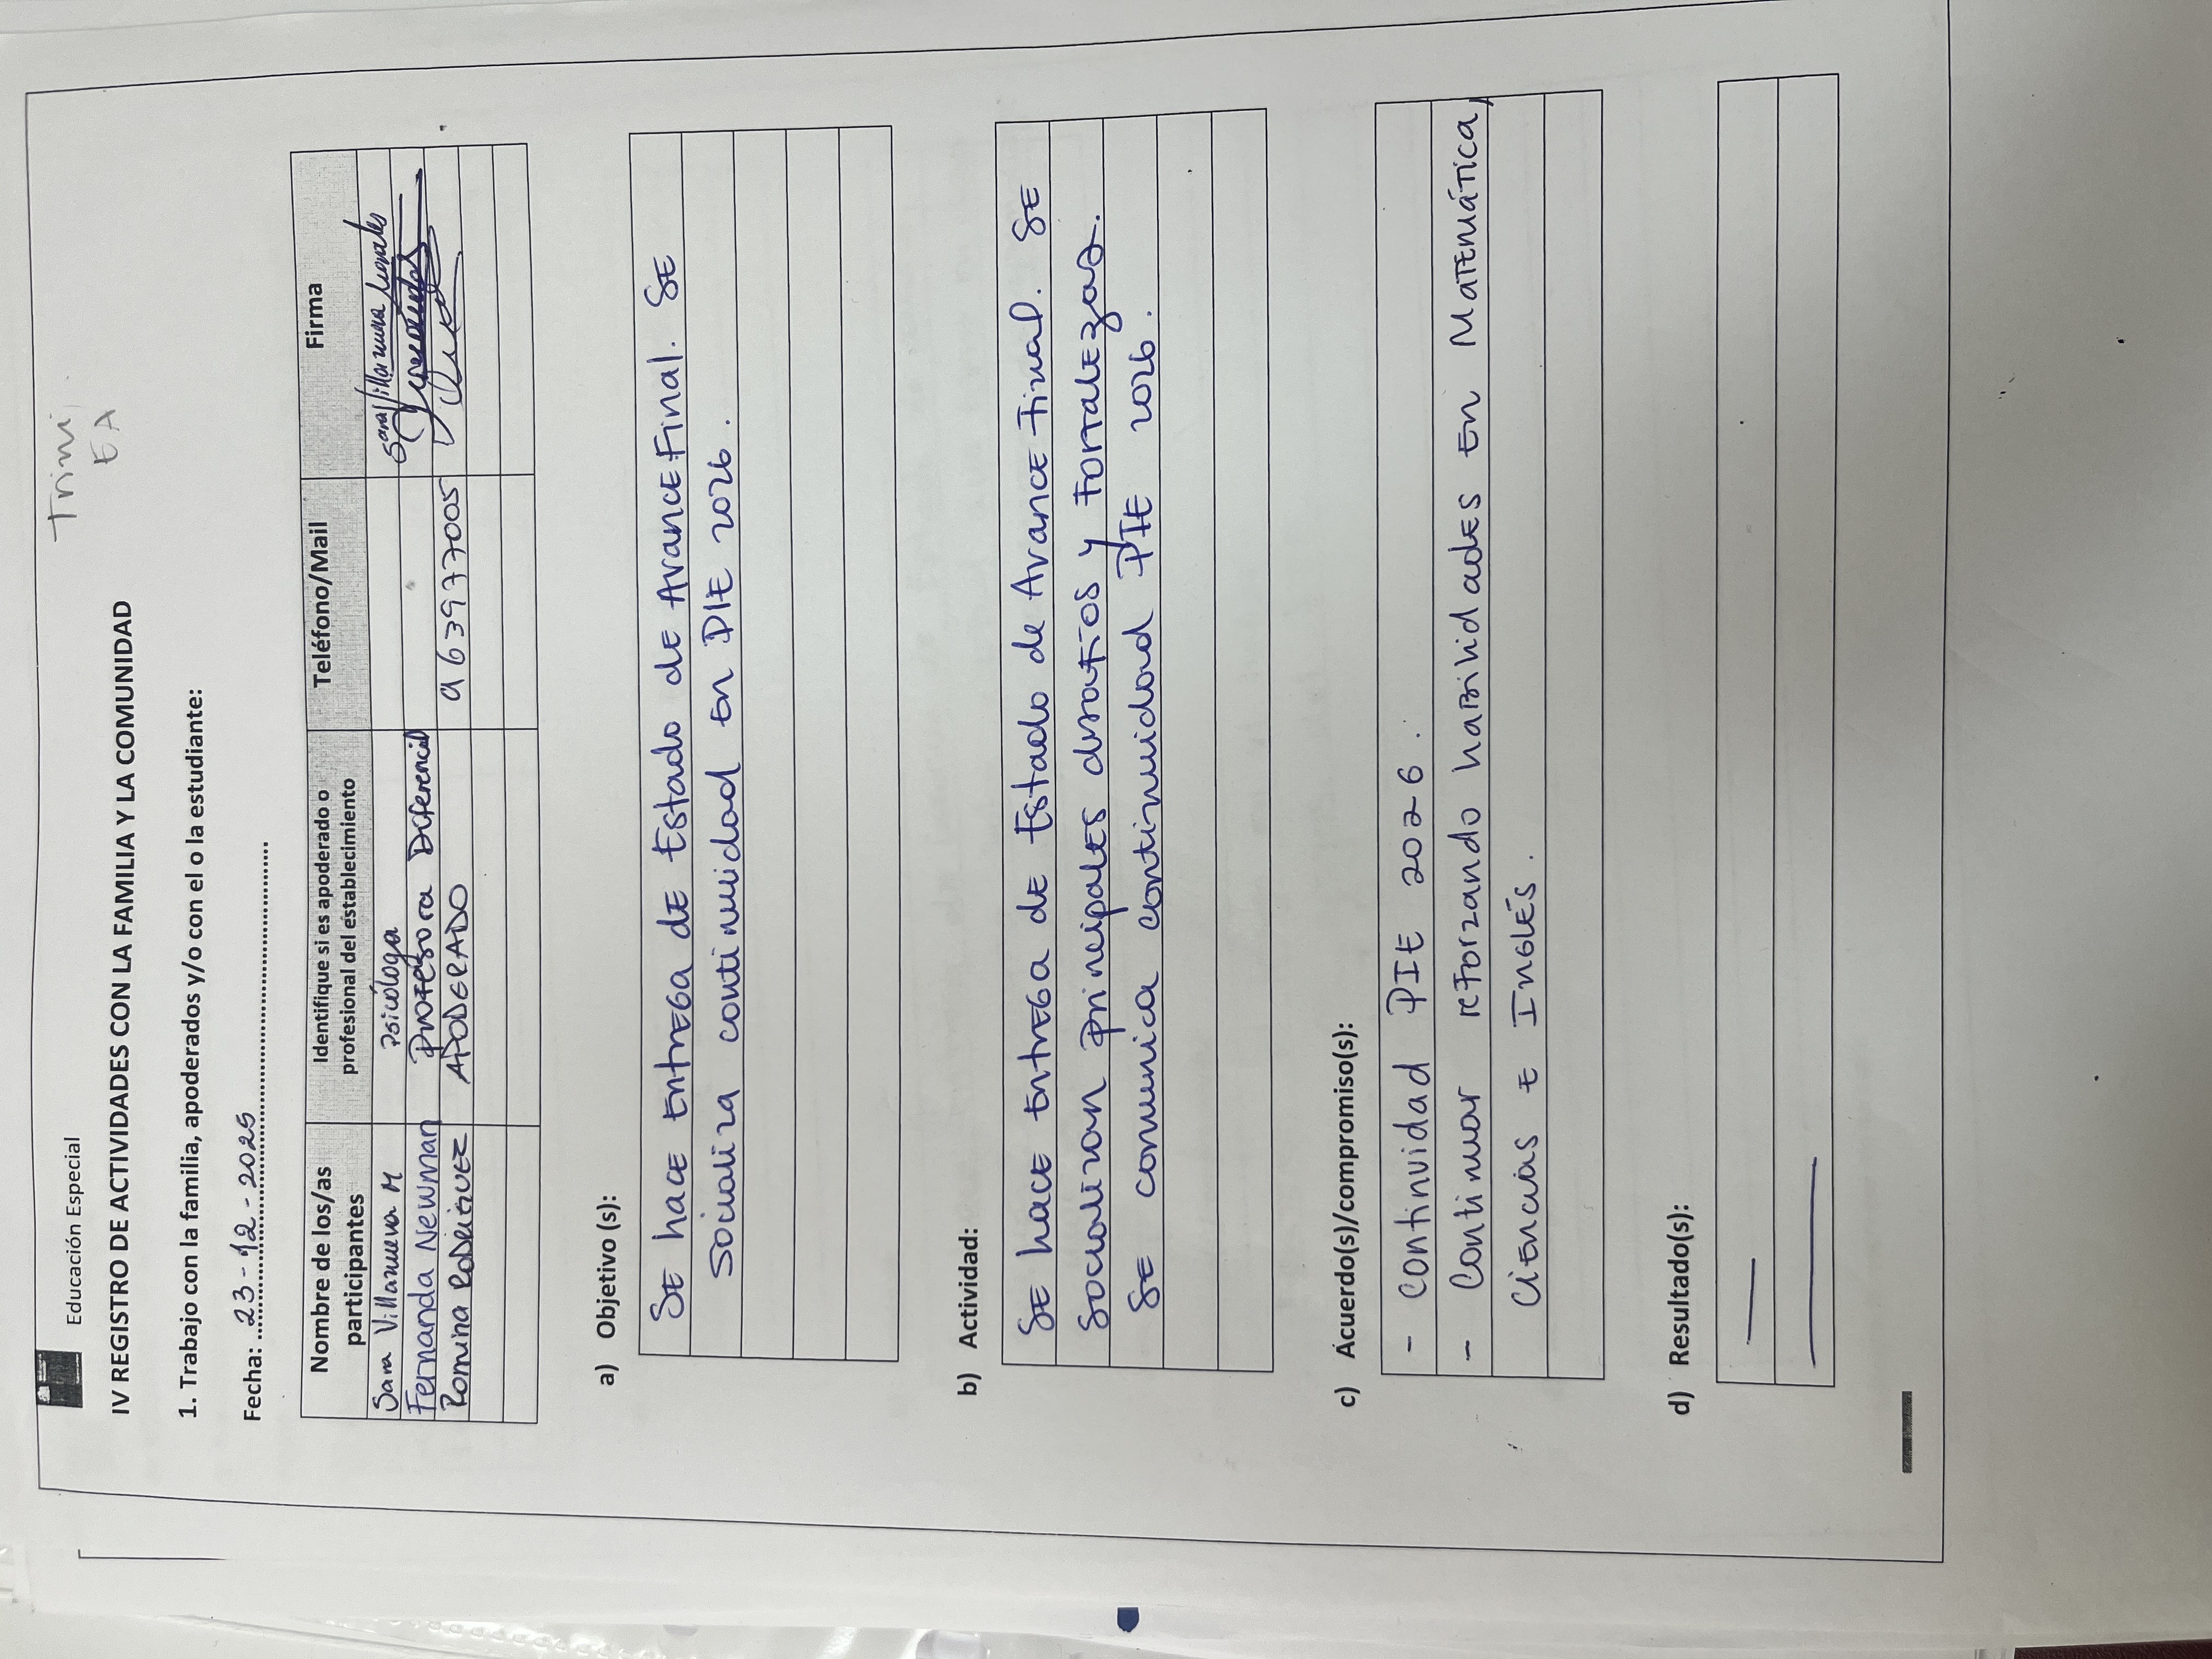 Trimi
EA
Educación Especial
IV REGISTRO DE ACTIVIDADES CON LA FAMILIA Y LA COMUNIDAD
1. Trabajo con la familia, apoderados y/o con el o la estudiante:
Fecha: 23-12-2025
Nombre de los/as participantes Identifique si es apoderado o profesional del establecimiento Teléfono/Mail Firma
Sara Villanueva M psicóloga
Fernanda Newman Profesora Diferencial
Romina Rodríguez APODERADO 963977005
a) Objetivo (s):
SE hace Entrega dE Estado de Avance Final. SE
Socializa continuidad En PIE 2026.
b) Actividad:
SE hace Entrega de Estado de Avance Final. SE
socializan principales desafíos y Fortalezas.
SE comunica continuidad PIE 2026.
c) Acuerdo(s)/compromiso(s):
- Continuidad PIE 2026.
- Continuar reforzando habilidades En Matemática,
Ciencias E Inglés.
d) Resultado(s):